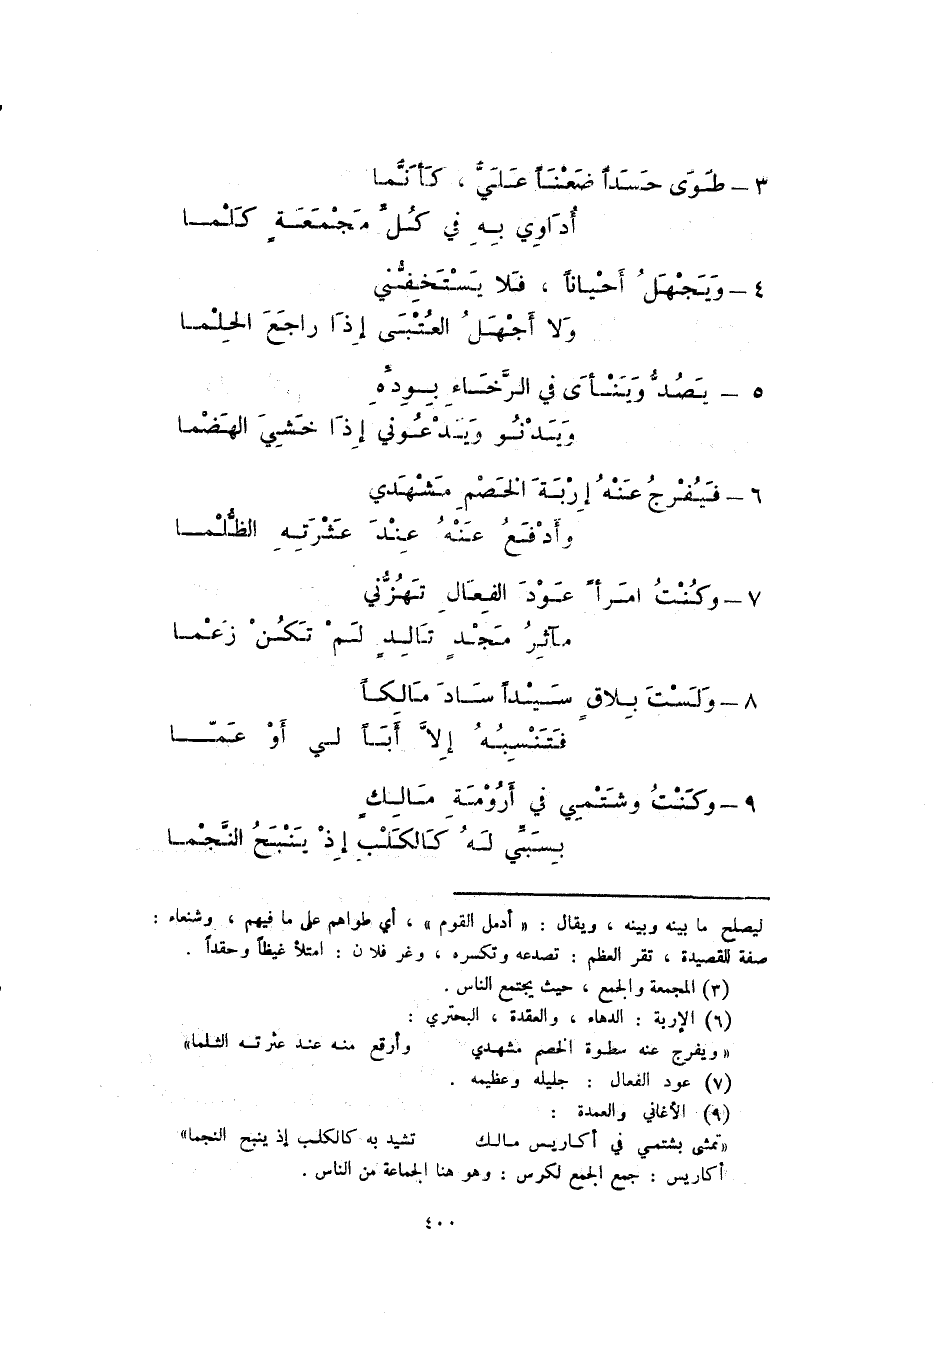 ٣ – طَوَى حَسَداً ضَغْنَاً عَلَيَّ ، كَأَنَّمَا
أُدَاوِي بِهِ فِي كُلِّ مَجْمَعَةٍ كَلْمَا
٤ – وَيَجْهَلُ أَحْيَاناً ، فَلَا يَسْتَخِفُّنِي
وَلَا أَجْهَلُ العُتْبَى إِذَا رَاجَعَ الحِلْمَا
٥ – يَصُدُّ وَيَنْأَى فِي الرَّخَاءِ بِوِدِّهِ
وَيَدْنُو وَيَدْعُونِي إِذَا خَشِيَ الهَضْمَا
٦ – فَيُفْرِجُ عَنْهُ إِرْبَةَ الخَصْمِ مَشْهَدِي
وَأَدْفَعُ عَنْهُ عِنْدَ عَثْرَتِهِ الظُّلْمَا
٧ – وَكُنْتُ امَرَأً عَوْدَ الفِعَالِ تَهُزُّنِي
مَآثِرُ مَجْدٍ تَالِدٍ لَمْ تَكُنْ زَعْمَا
٨ – وَلَسْتَ بِلاقٍ سَيِّداً سَادَ مَالِكاً
فَتَنْسِبُهُ إِلاَّ أَبَاً لِي أَوْ عَمَّا
٩ – وَكَنْتُ وشَتْمِي فِي أَرُوْمَةِ مَالِكٍ
بِسَبِّي لَهُ كَالكَلْبِ إِذْ يَنْبَحُ النَّجْمَا
ليصلح ما بينه وبينه ، ويقال : « أدمل القوم » ، أي طواهم على ما فيهم ، وشنعاء :
صفة للقصيدة ، تقر العظم : تصدعه وتكسره ، وغر فلان : امتلأ غيظاً وحقداً .
(٣) المجمعة والجمع ، حيث يجتمع الناس .
(٦) الإربة : الدهاء ، والعقدة ، البحتري :
« ويفرج عنه سطوة الخصم مشهدي وأرقع منه عند عثرته الثلما»
(٧) عود الفعال : جليله وعظيمه .
(٩) الأغاني والعمدة :
«تمشى بشتمي في أكاريس مالك تشيد به كالكلب إذ ينبح النجما»
أكاريس : جمع الجمع لكرس : وهو هنا الجماعة من الناس .
٤٠٠